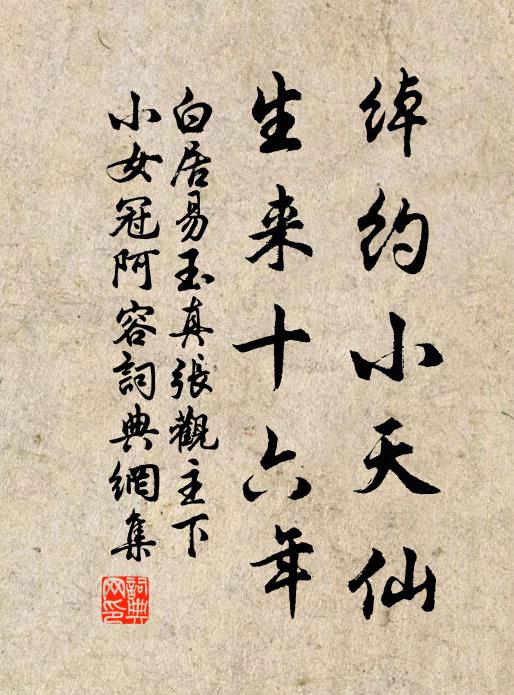 绰约小天仙
生来十六年
白居易玉真張觀主下
小女冠阿容詞典網集
詞典